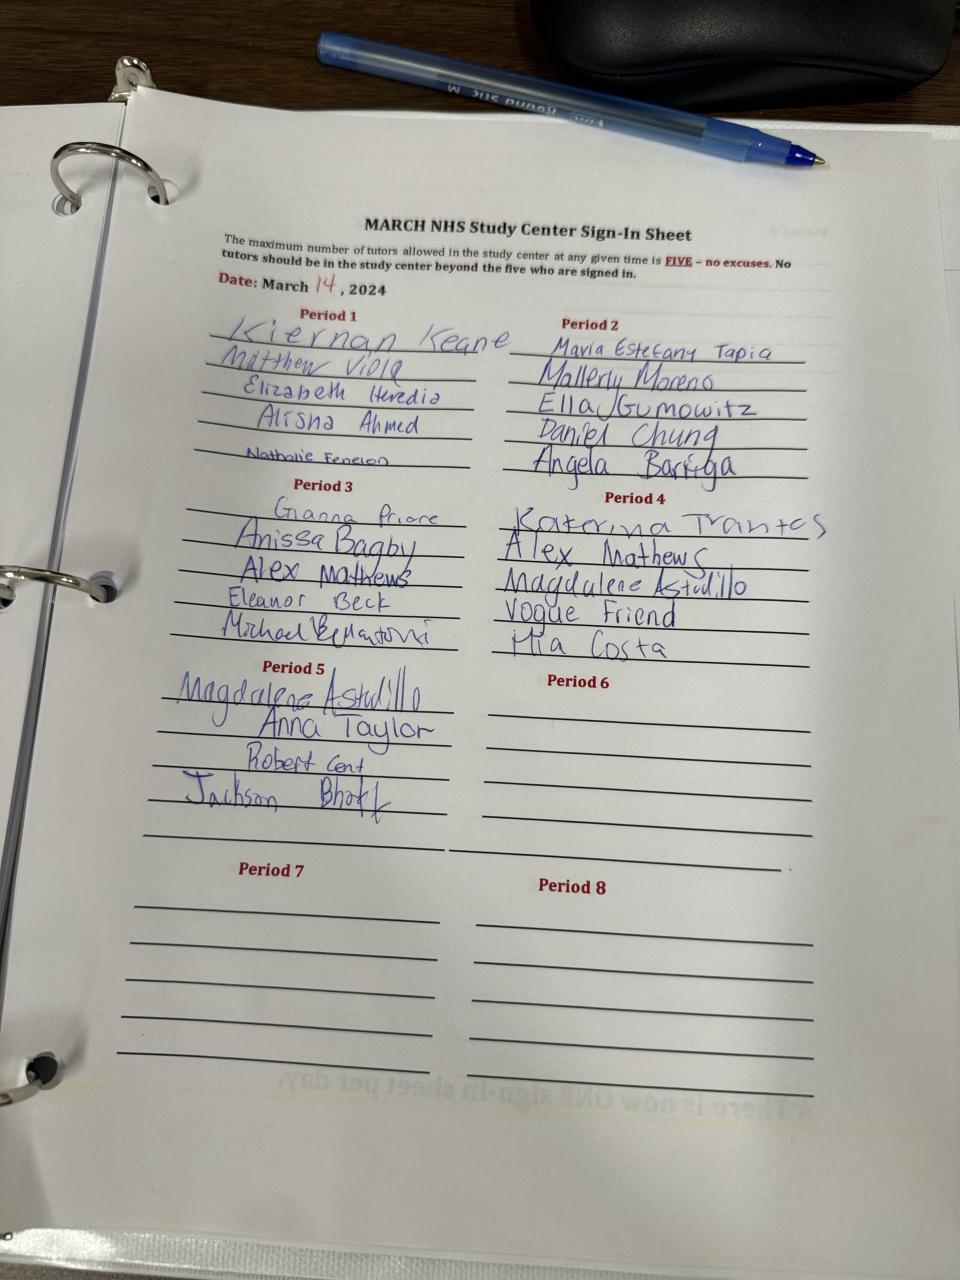 MARCH NHS Study Center Sign-In Sheet
The maximum number of tutors allowed in the study center at any given time is FIVE – no excuses. No
tutors should be in the study center beyond the five who are signed in.
Date: March 14, 2024
Period 1
Kiernan Keane
Matthew Viola
Elizabeth Heredia
Alisha Ahmed
Nathalie Fenelon
Period 2
Maria Estefany Tapia
Mallerly Moreno
Ella Gumowitz
Daniel Chung
Angela Barriga
Period 3
Gianna Priore
Anissa Bagby
Alex Mathews
Eleanor Beck
Michael
Period 4
Katerina Trantos
Alex Mathews
Magdalene Astudillo
Vogue Friend
Mia Costa
Period 5
Magdalene Astudillo
Anna Taylor
Robert
Jackson
Period 6
Period 7
Period 8
There is now ONE sign-in sheet per day.